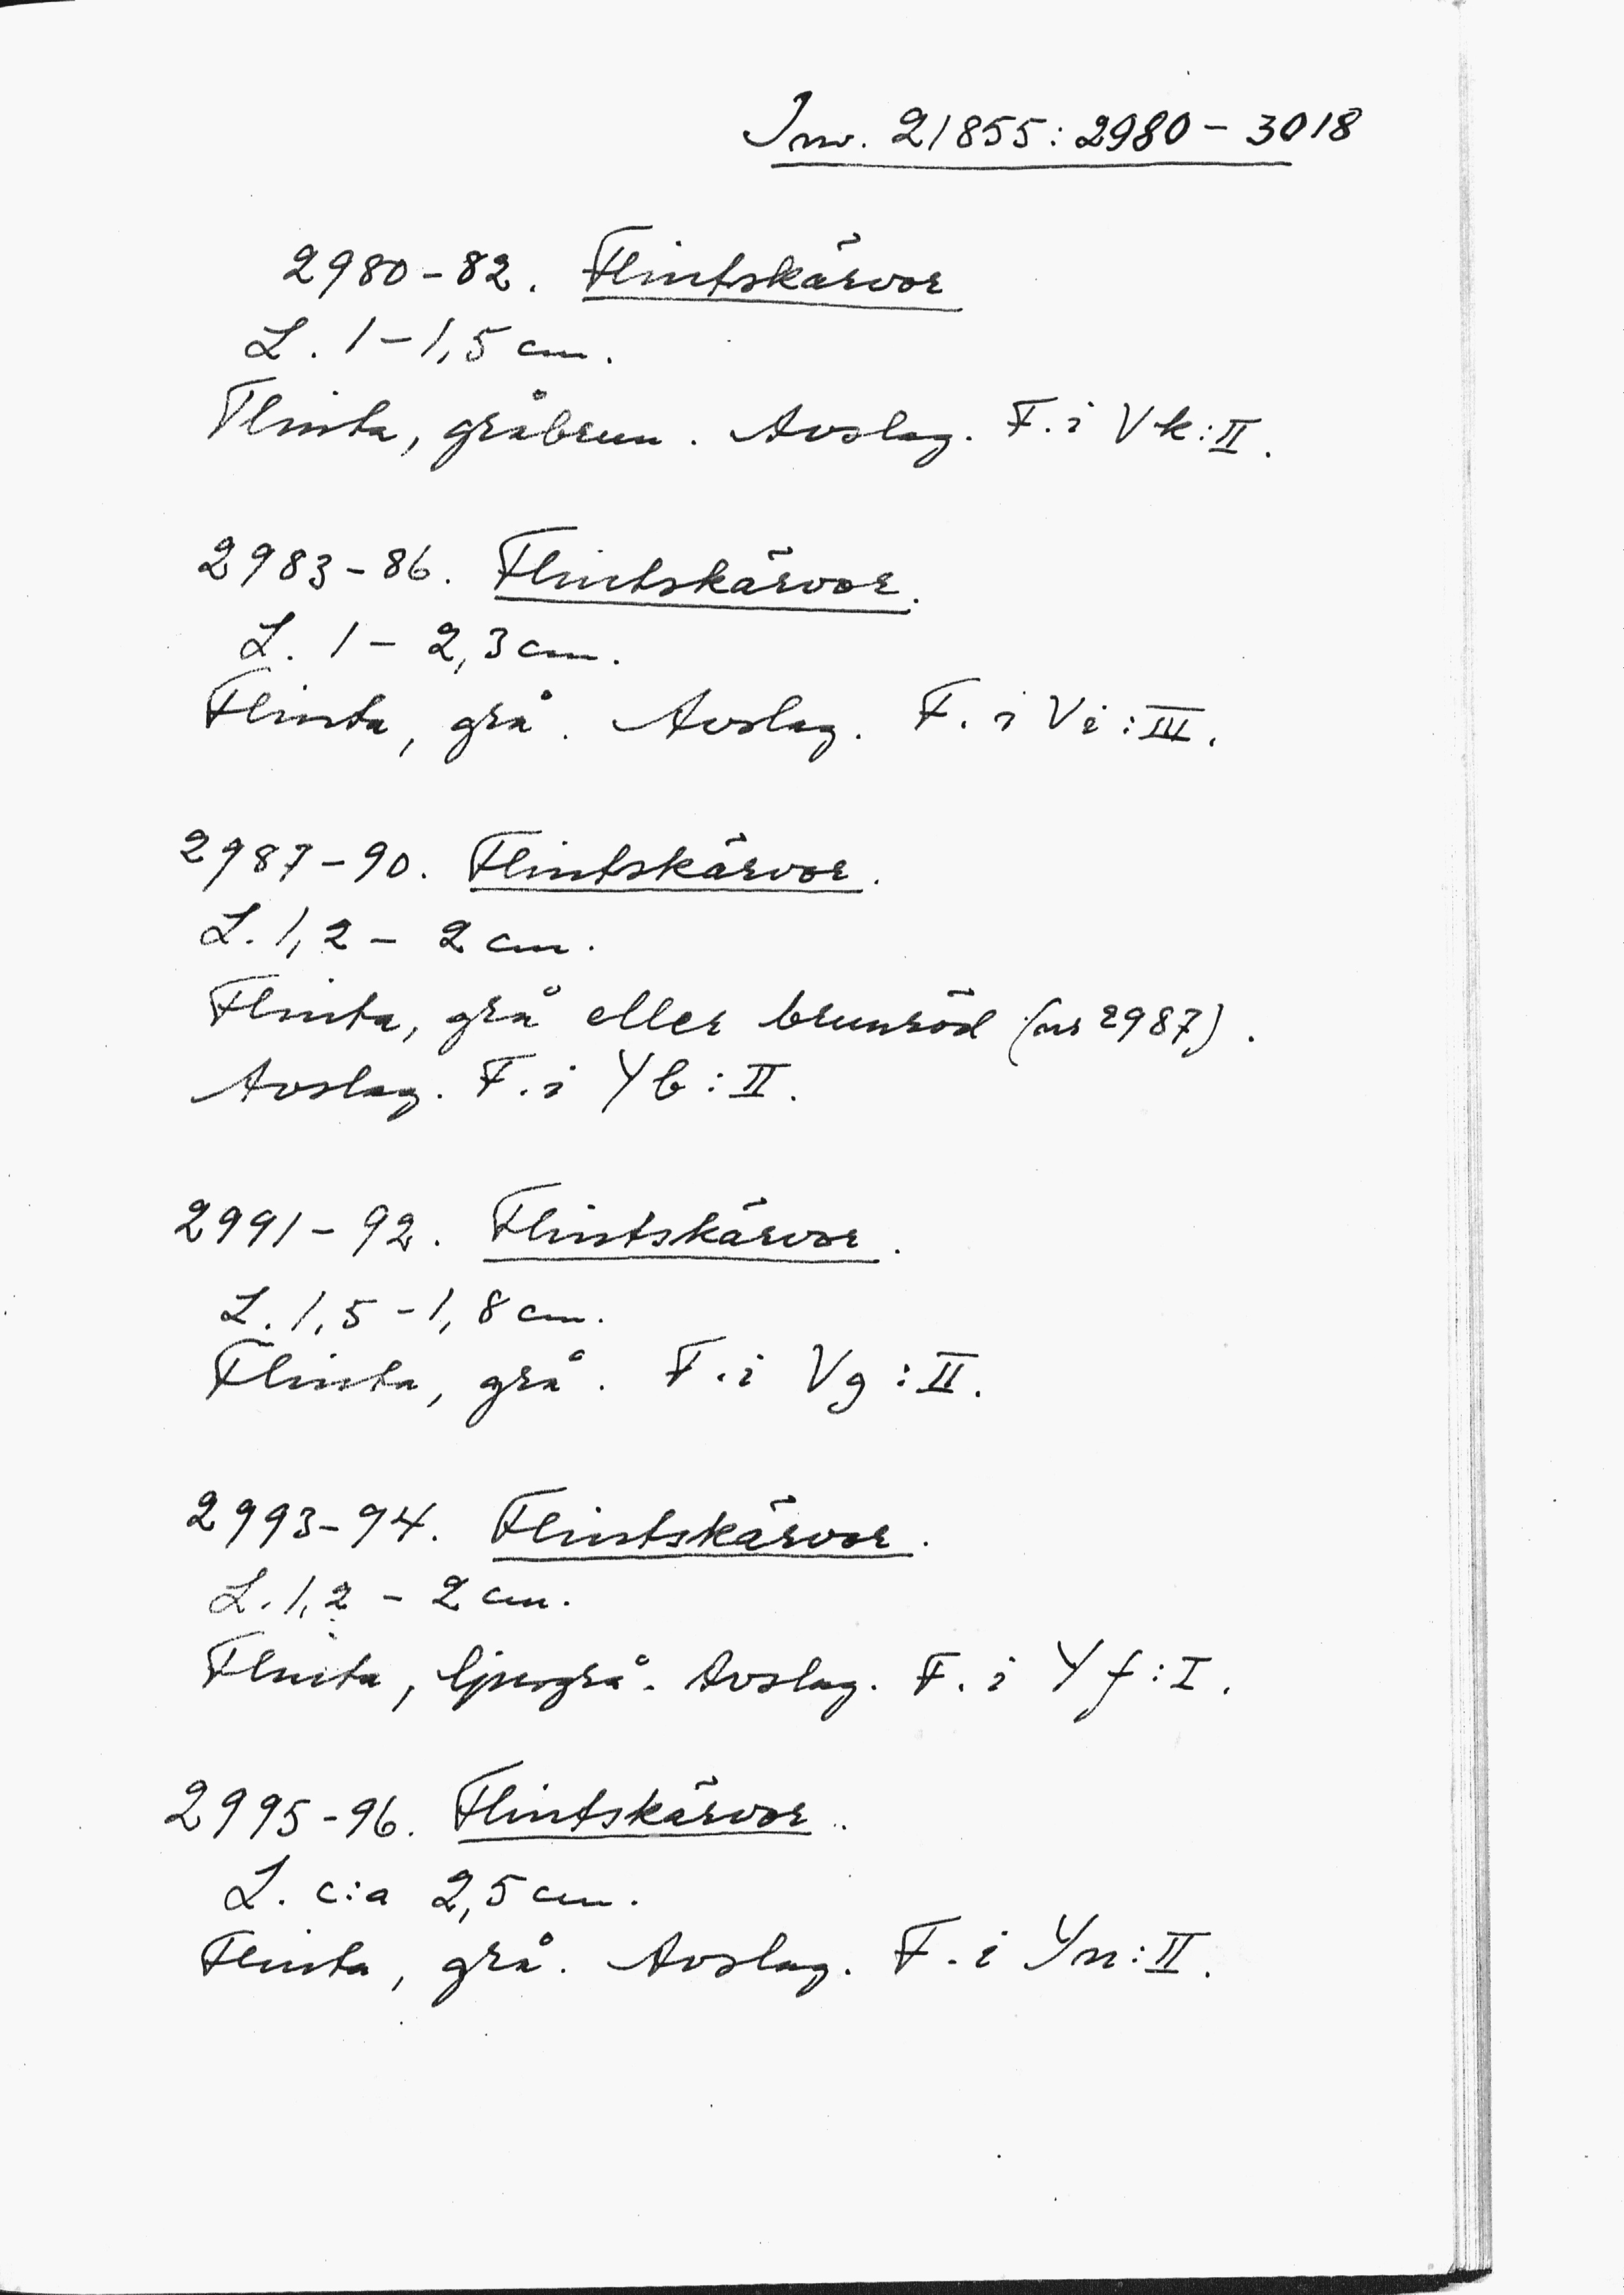 Inv. 21855:2980-3018
2980-82. Flintskärvor
L. 1-1,5 cm.
Flinta, gråbrun. Avslag. F. i Vk:II.
2983-86. Flintskärvor.
L. 1-2,3 cm.
Flinta, grå. Avslag. F. i Vi:III.
2987-90. Flintskärvor.
L. 1,2-2 cm.
Flinta, grå eller brunröd (nr 2987).
Avslag. F. i Yb:II.
2991-92. Flintskärvor.
L. 1,5-1,8 cm.
Flinta, grå. F. i Vg:II.
2993-94. Flintskärvor.
L. 1,2-2 cm.
Flinta, ljusgrå. Avslag. F. i Yf:I.
2995-96. Flintskärvor.
L. c:a 2,5 cm.
Flinta, grå. Avslag. F. i Yn:II.